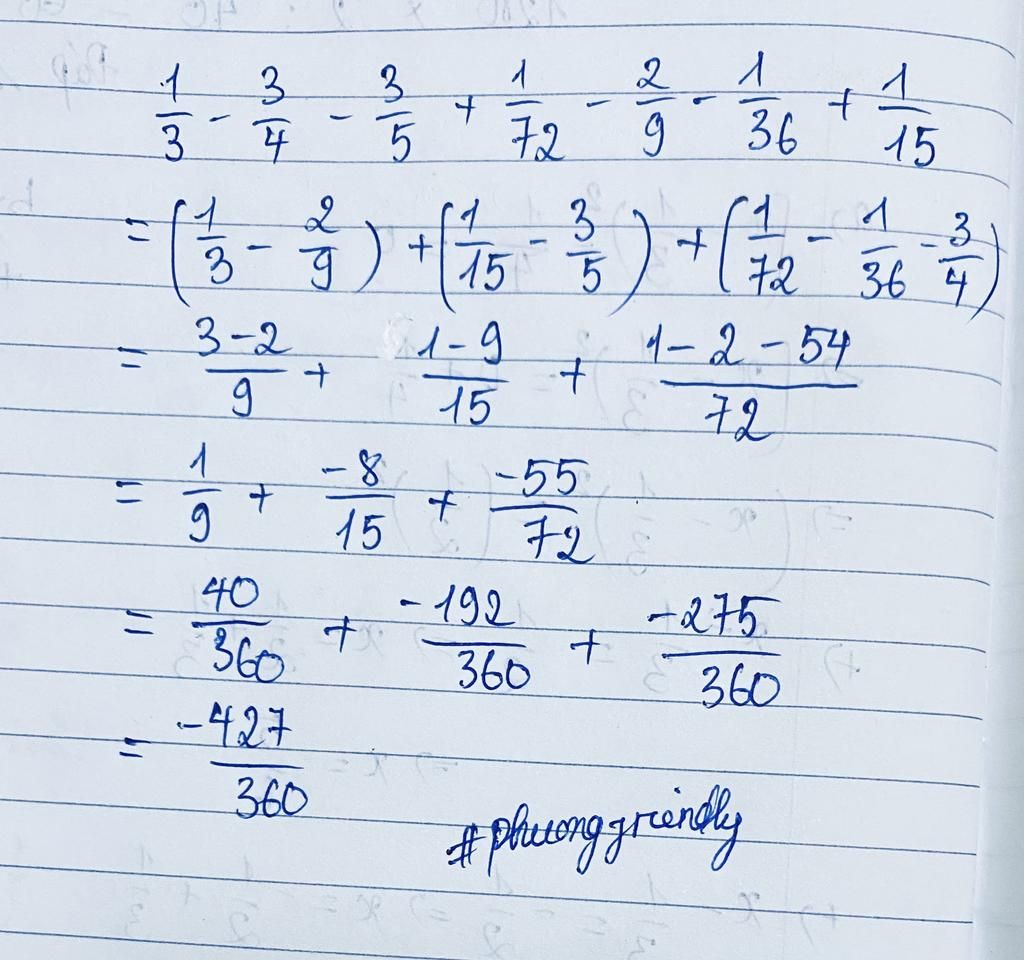 1/3 - 3/4 - 3/5 + 1/72 - 2/9 - 1/36 + 1/15
= (1/3 - 2/9) + (1/15 - 3/5) + (1/72 - 1/36 - 3/4)
= (3-2)/9 + (1-9)/15 + (1-2-54)/72
= 1/9 + -8/15 + -55/72
= 40/360 + -192/360 + -275/360
= -427/360
#phuongfriendly